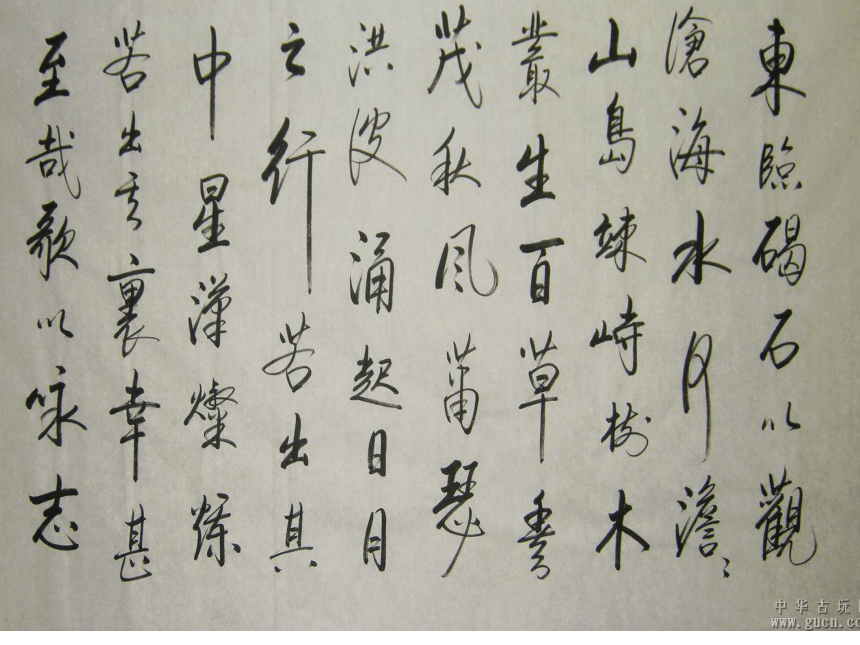 東臨碣石以觀
滄海水何澹〻
山島竦峙樹木
叢生百草
茂秋風蕭瑟
洪波涌起日月
之行若出其
中星漢燦爛
若出其裏幸甚
至哉歌以咏志
中华古玩
www.gucn.co